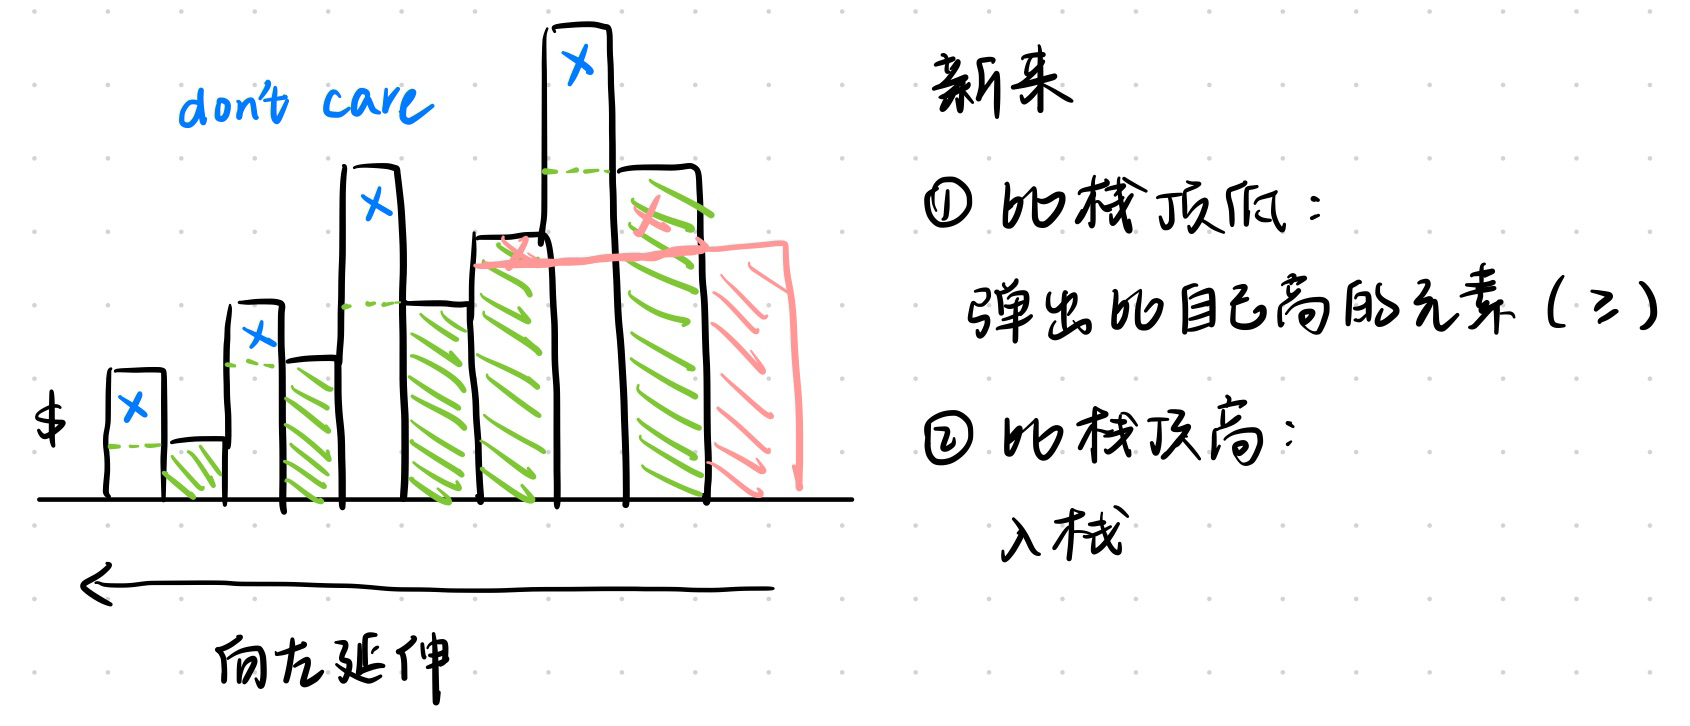 don't care
$
向左延伸
新来
① 比栈顶低：
弹出比自己高的元素（≥）
② 比栈顶高：
入栈